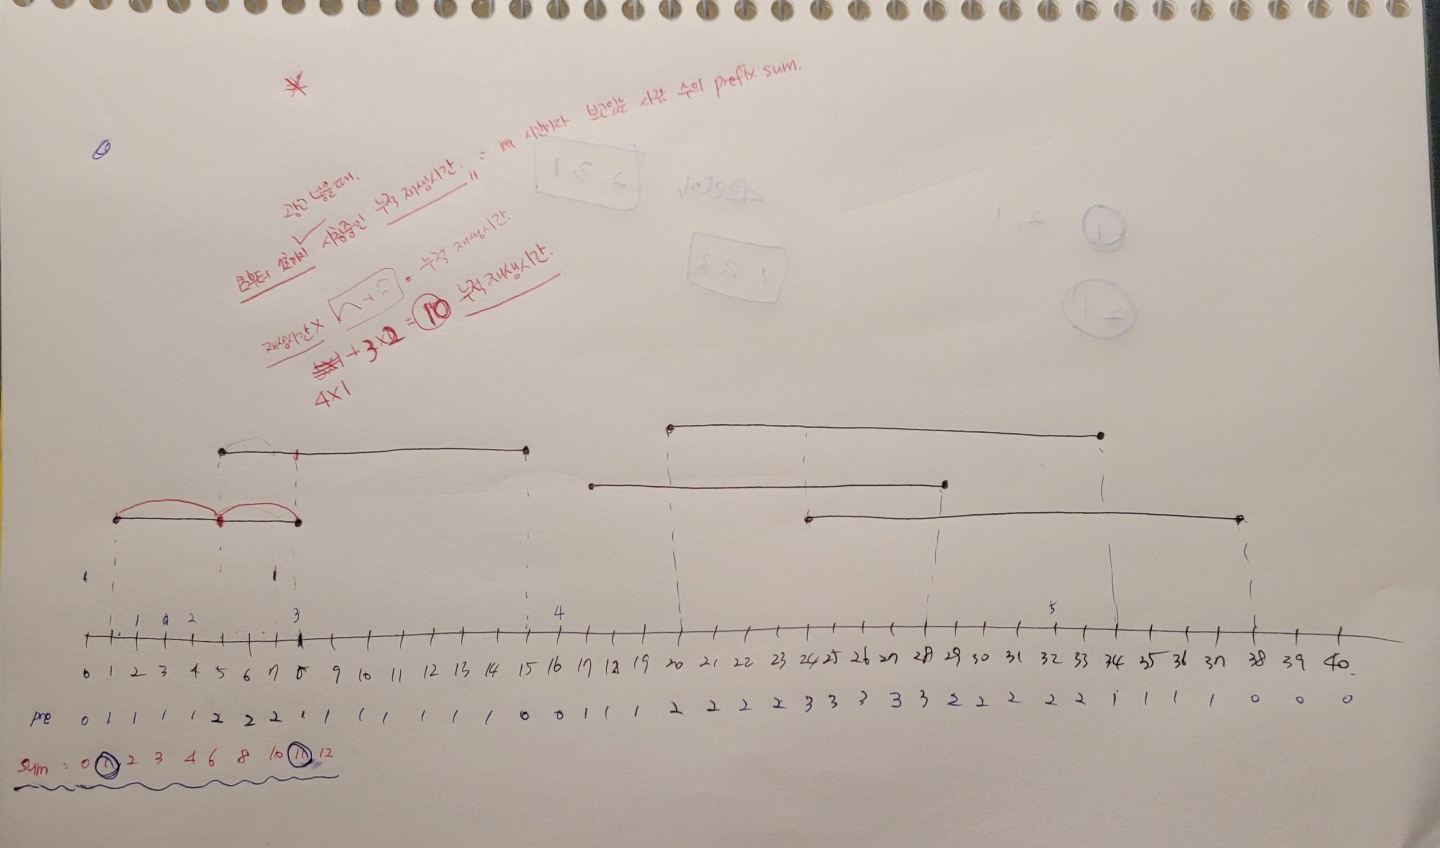 광고 넣을 때.
시청중인 누적 재생시간. = 매 시간마다 보고있는 사람 수의 prefix sum.
재생시간 × = 누적 재생시간.
+ 3×2 = 10 누적 재생시간.
4×1
1 2 3 4 5
0 1 2 3 4 5 6 7 8 9 10 11 12 13 14 15 16 17 18 19 20 21 22 23 24 25 26 27 28 29 30 31 32 33 34 35 36 37 38 39 40
pre 0 1 1 1 1 2 2 2 1 1 1 1 1 1 1 0 0 1 1 1 2 2 2 2 3 3 3 3 3 2 2 2 2 2 1 1 1 1 0 0 0
sum : 0 1 2 3 4 6 8 10 11 12